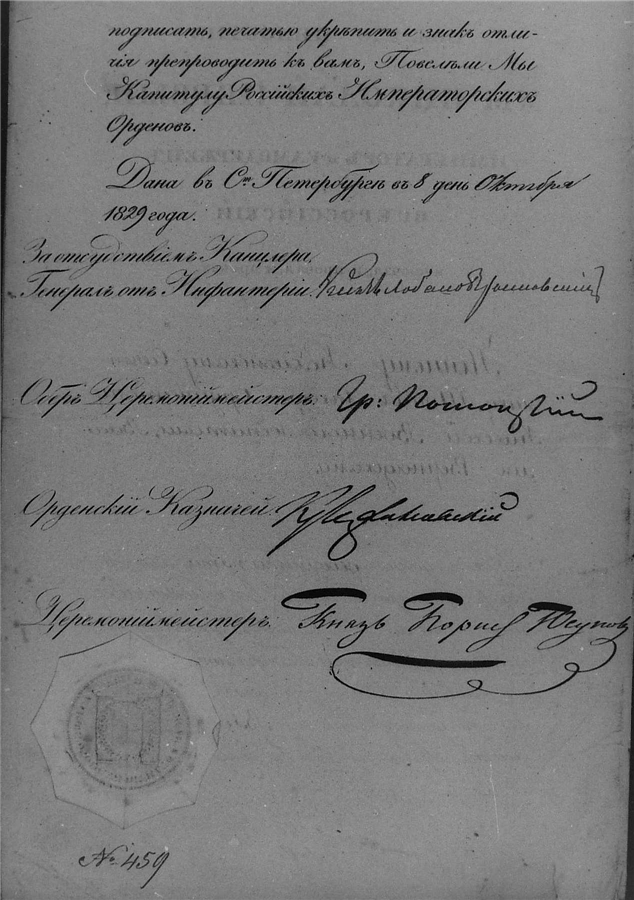 подписать, печатью укрѣпить и знакъ отли-
чія препроводить къ вамъ, Повелѣли Мы
Капитулу Россійскихъ Императорскихъ
Орденовъ.
Дана въ Ст Петербургѣ въ 8 день Октября
1829 года.
За отсудствіемъ Канцлера,
Генералъ отъ Инфантеріи. Князь Лобановъ Ростовскій
Оберъ Церемоніймейстеръ: Гр: Потоцкій
Орденскій Казначей
Церемоніймейстеръ: Князь Борисъ Юсуповъ
№ 459